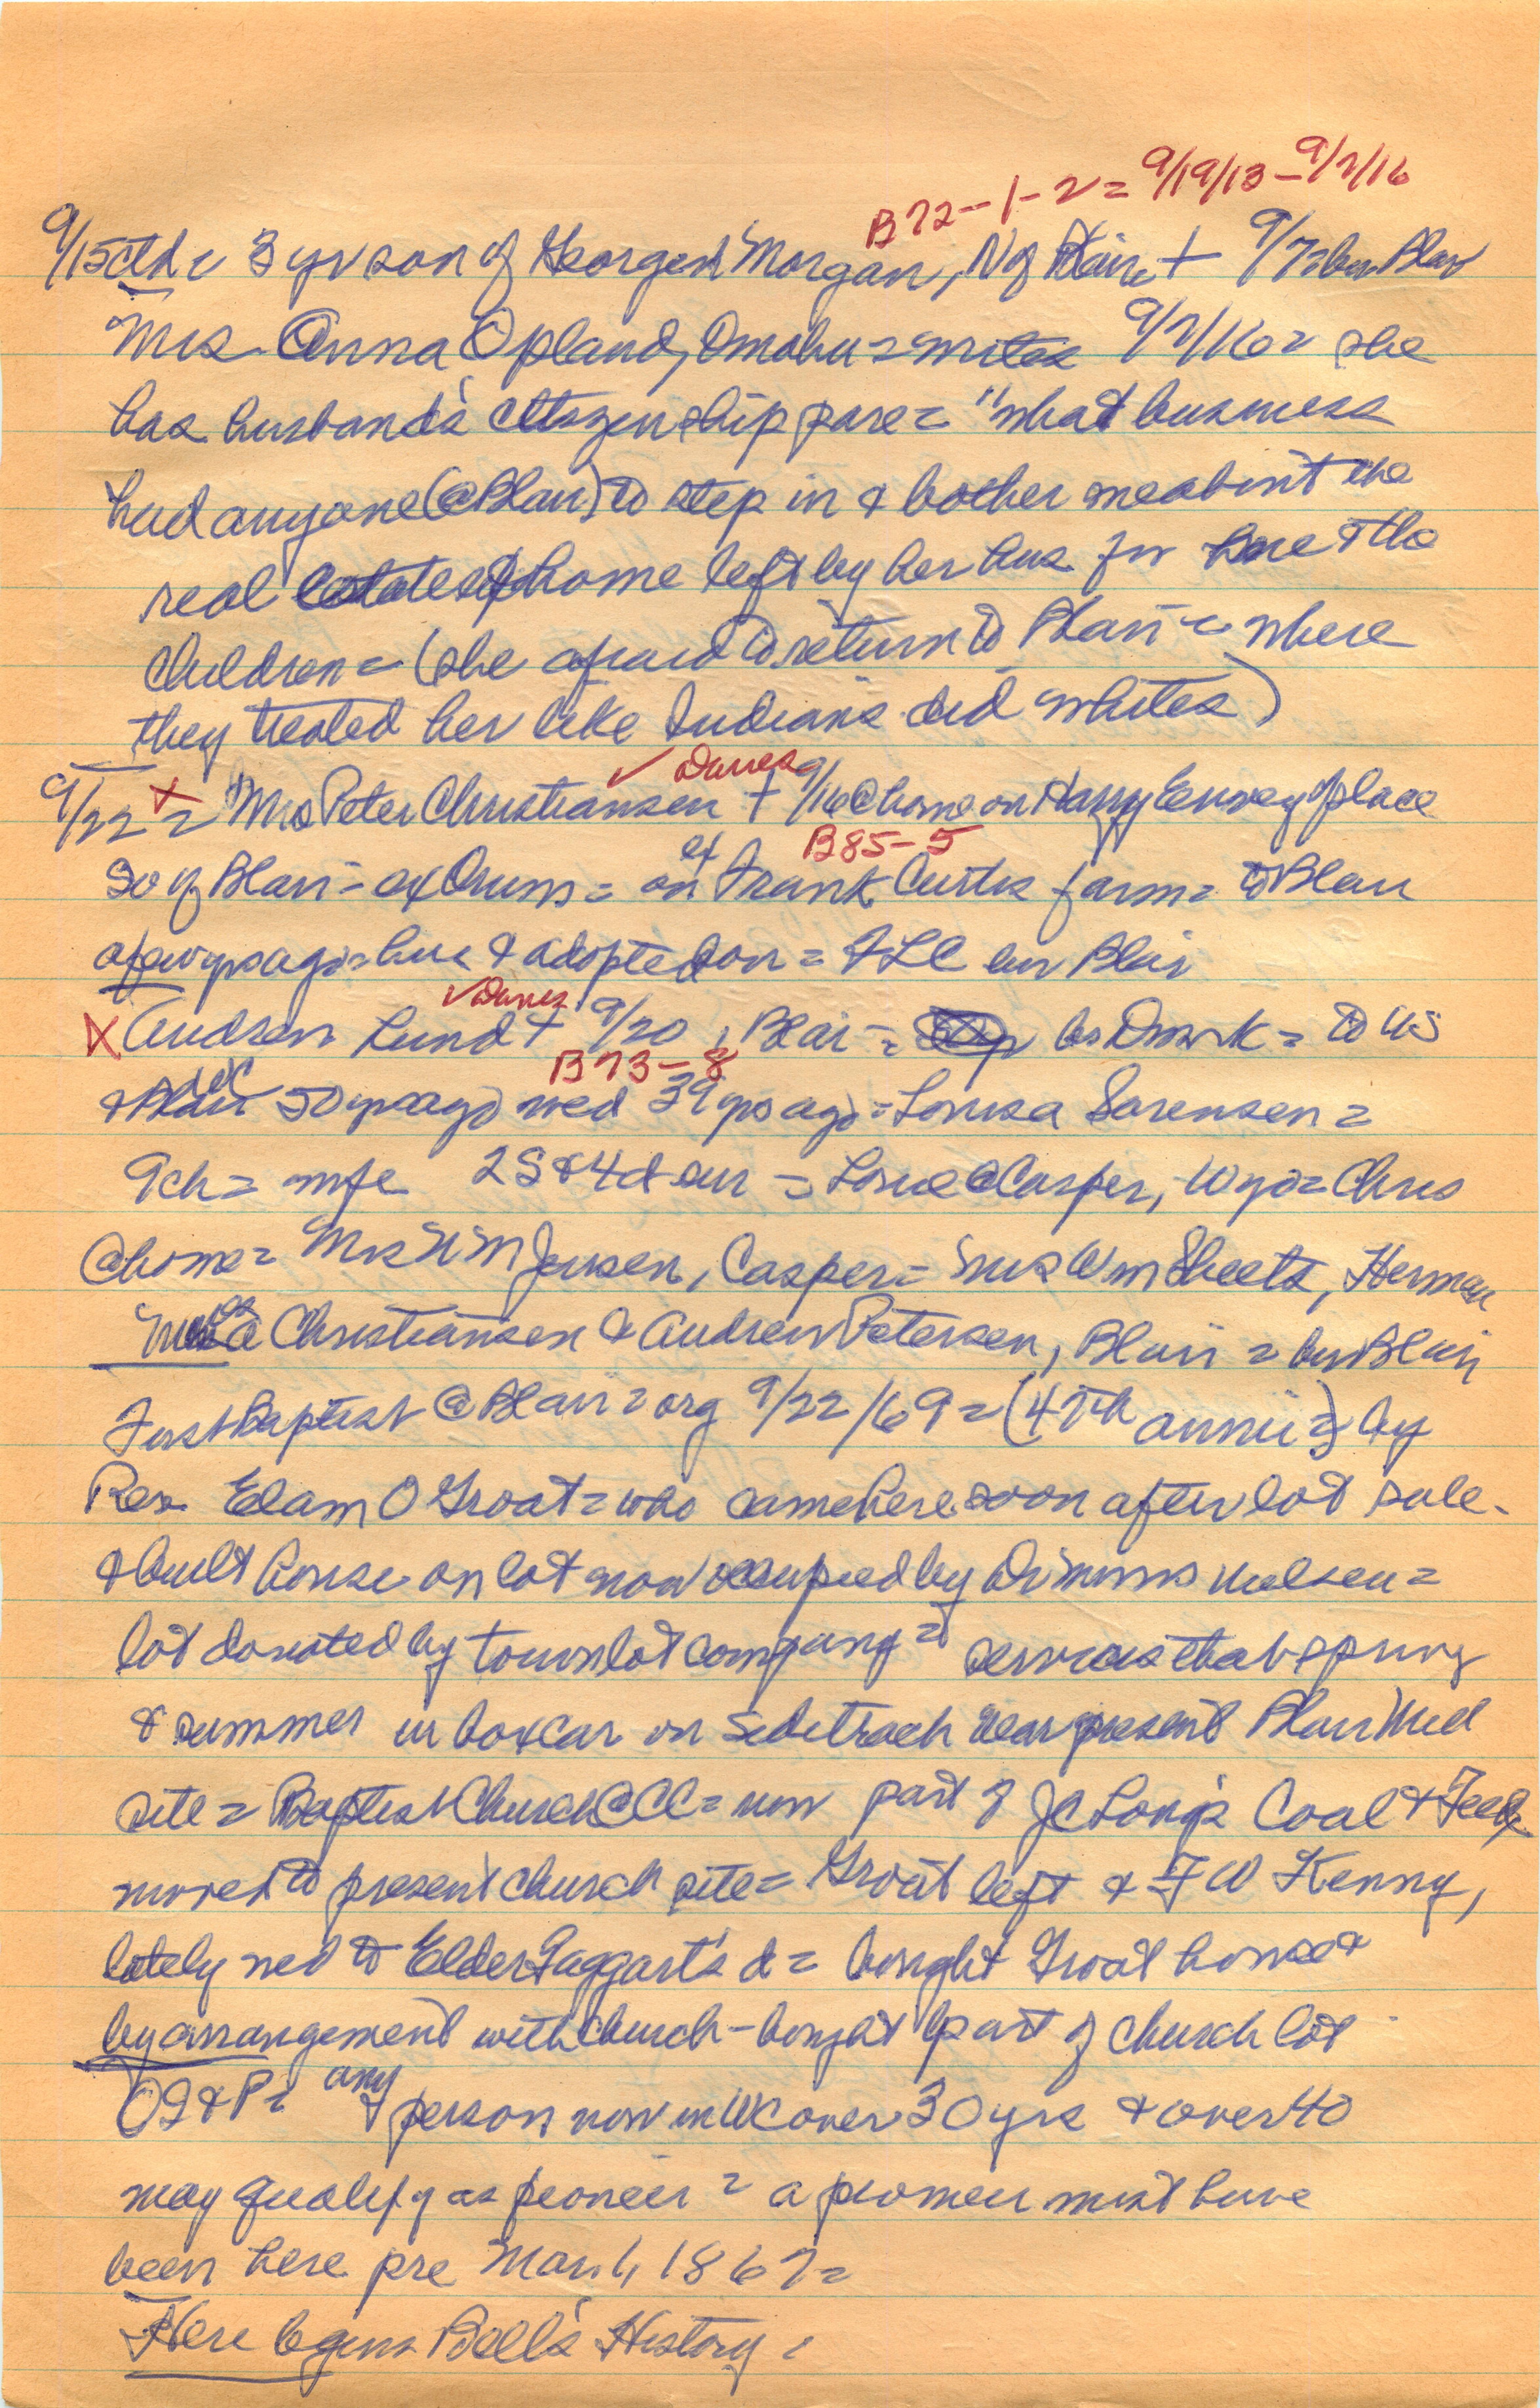 B72-1-2 = 9/19/13 - 9/7/16
9/15 ctd = 3 yr son of George Morgan, N of Blair + 9/7 = bur Blair
Mrs Anna Opland, Omaha = writes 9/7/16 = she
has husband's citizenship pare = "what business
had anyone (@Blair) to step in & bother me about the
real estate & home left by her hus for her & the
children = (she afraid to return to Blair = where
they treated her like Indians did whites)
✓ Danes
9/22 X = Mrs Peter Christiansen + 9/16 @ home on Harry place
B85-5
So of Blair = of Orum = on Frank Curtis farm = to Blair
a few yrs ago = hus & adopted son = FLC bur Blair
✓ Danes
X Andrew Lund + 9/20, Blair = bo Dmrk = to US
B73-8
& Blair 50 yrs ago wed 39 yrs ago = Louisa Sorensen =
9ch = wife 2S & 4d sur = Louie @ Casper, Wyo = Chris
@ home = Mrs W M Jensen, Casper = Mrs Wm Sheets, Herman
Christiansen & Andrew Petersen, Blair = bur Blair
First Baptist @ Blair = org 9/22/69 = (47th anni =) by
Rev Elam O Groat = who came here soon after lot sale -
& built house on lot now occupied by Dr Morris Nielsen =
lot donated by town lot company = services that spring
& summer in boxcar on sidetrack near present Blair Mill
site = Baptist Church @ CC = now part of JC Long's Coal & Feed
moved to present church site = Groat left & F W Kenny,
lately wed to Elder Taggart's d = bought Groat house &
by arrangement with church - bought part of church lot
OS & P = any person now in WC over 30 yrs & over 40
may qualify as pioneer = a pioneer must have
been here pre Mar. 1, 1867 =
Here begins Bell's History =